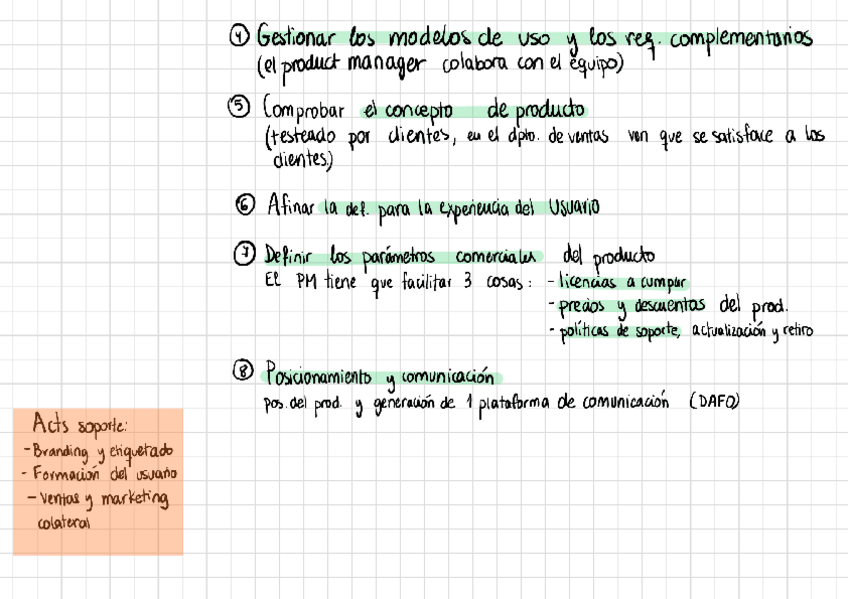 ④ Gestionar los modelos de uso y los req. complementarios
(el product manager colabora con el equipo)
⑤ Comprobar el concepto de producto
(testeado por clientes, en el dpto. de ventas ven que se satisface a los
clientes)
⑥ Afinar la def. para la experiencia del usuario
⑦ Definir los parámetros comerciales del producto
El PM tiene que facilitar 3 cosas: - licencias a cumplir
- precios y descuentos del prod.
- políticas de soporte, actualización y retiro
⑧ Posicionamiento y comunicación
pos. del prod. y generación de 1 plataforma de comunicación (DAFO)
Acts soporte:
- Branding y etiquetado
- Formación del usuario
- Ventas y marketing
colateral